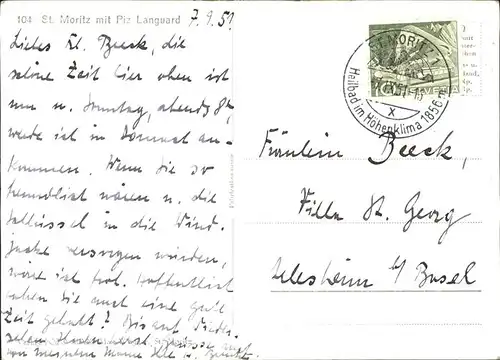 104 St. Moritz mit Piz Languard
7.9.51
Liebes Frl. Beeck, die
schöne Zeit hier oben ist
um u. Sonntag, abends 8h,
werde ich in Dornach an-
kommen. Wenn Sie so
freundlich wären u. die
Schlüssel in die Wind-
jacke versorgen würden,
wäre ich froh. Hoffentlich
haben Sie auch eine gute
Zeit gehabt? Bis auf Wieder-
sehen Ihnen
ST. MORITZ 1
HELVETIA
Heilbad im Hochenklima 1856 m
X
Fräulein Beeck,
Villa St. Georg
Arlesheim b/ Basel